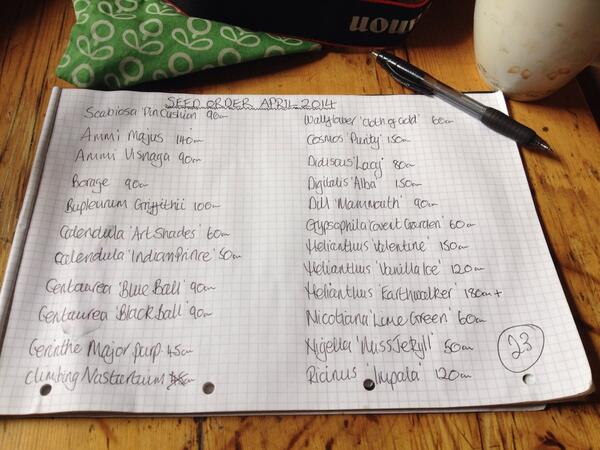 SEED ORDER APRIL 2014
Scabiosa 'Pin Cushion' 90cm
Ammi Majus 140cm
Ammi Visnaga 90cm
Borage 90cm
Bupleurum Griffithii 100cm
Calendula 'Art Shades' 60cm
Calendula 'Indian Prince' 50cm
Centaurea 'Blue Ball' 90cm
Centaurea 'Black Ball' 90cm
Cerinthe Major purp 45cm
Climbing Nasturtium
Wallflower 'Cloth of Gold' 60cm
Cosmos 'Purity' 150cm
Didiscus 'Lacy' 80cm
Digitalis 'Alba' 150cm
Dill 'Mammouth' 90cm
Gypsophila 'Covent Garden' 60cm
Helianthus 'Valentine' 150cm
Helianthus 'Vanilla Ice' 120cm
Helianthus 'Earthwalker' 180cm+
Nicotiana 'Lime Green' 60cm
Nigella 'Miss Jekyll' 50cm
Ricinus 'Impala' 120cm
23